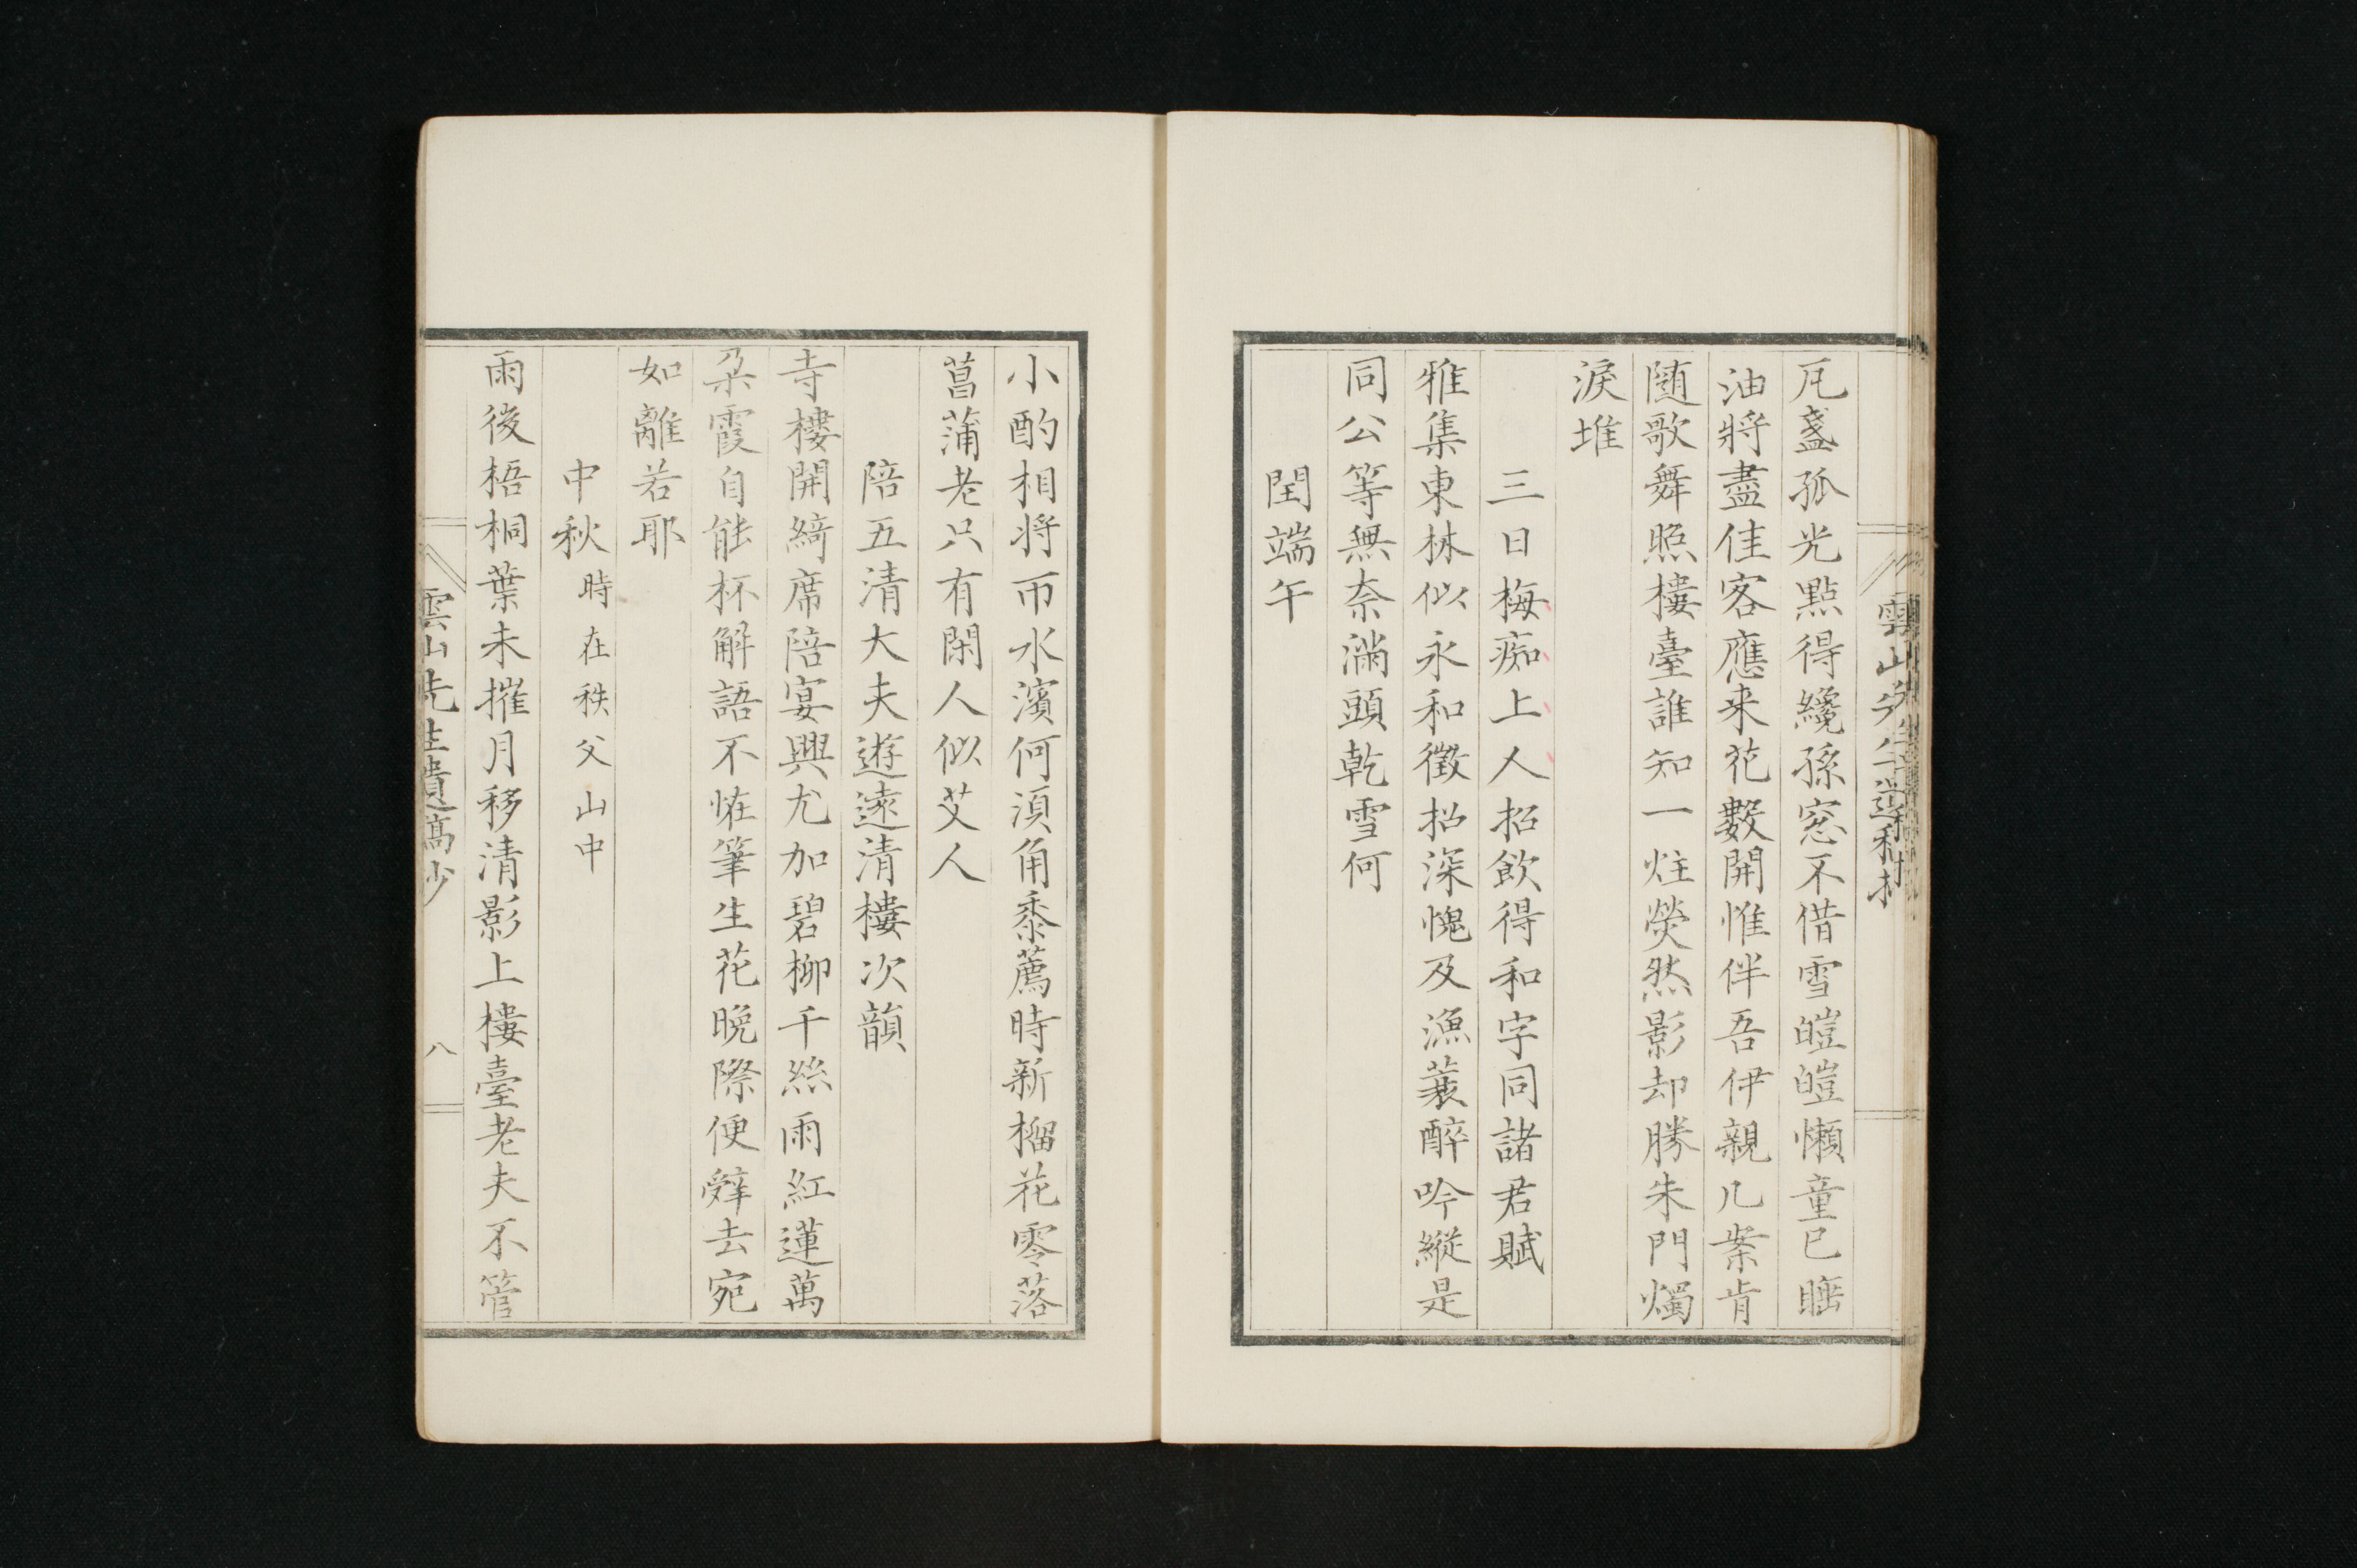 凡盞孤光點得纔孫窓不借雪皚皚懶童已睡
油將盡佳客應来花數開惟伴吾伊親几案肯
随歌舞照樓臺誰知一炷熒然影却勝朱門燭
淚堆
三日梅痴上人招飲得和字同諸君賦
雅集東林似永和徵招深愧及漁蓑醉吟縱是
同公等無奈滿頭乾雪何
閏端午
小酌相将帀水濱何須角黍薦時新榴花零落
菖蒲老只有閑人似艾人
陪五清大夫遊遠清樓次韻
寺樓開綺席陪宴興尤加碧柳千絲雨紅蓮萬
朶霞自能杯解語不恠筆生花晚際便辤去宛
如離若耶
中秋時在秩父山中
雨後梧桐葉未摧月移清影上樓臺老夫不管
雲山先生遺稾抄
八